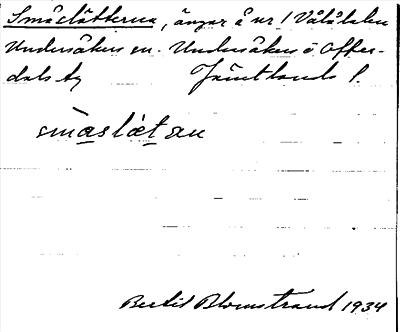 Småslåtterna, ängar å nr 1 Vålådalen
Undersåkers sn. Undersåkers o Offer-
dals tg Jämtlands l.
småslæt an
Bertil Blomstrand 1934